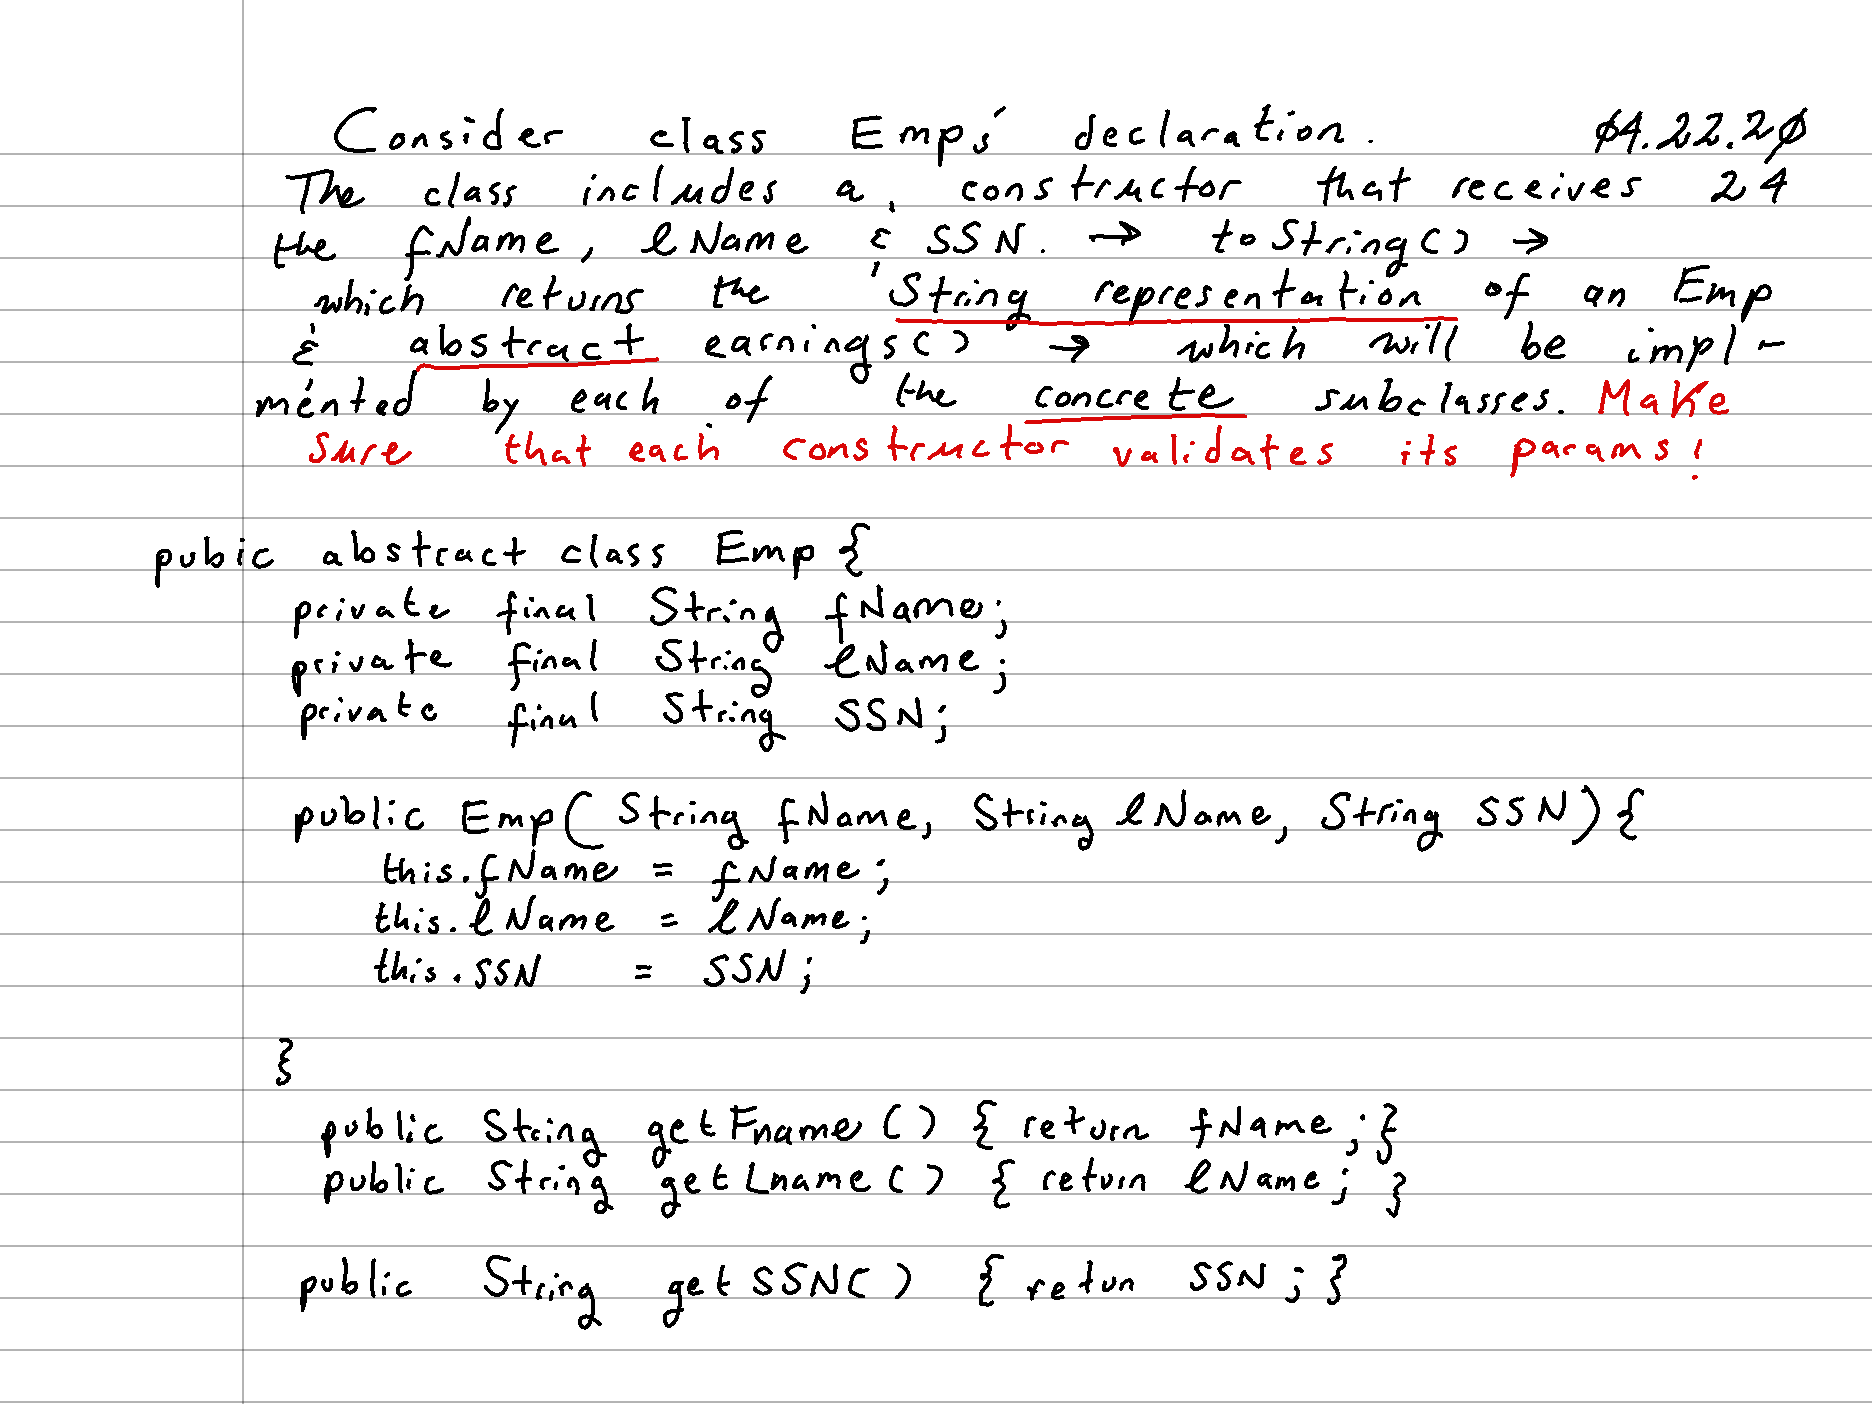 Consider class Emp's declaration. 04.22.20
The class includes a constructor that receives 24
the fName, lName & SSN. → toString() →
which returns the String representation of an Emp
& abstract earnings() → which will be impl-
mented by each of the concrete subclasses. Make
sure that each constructor validates its params!
pubic abstract class Emp {
private final String fName;
private final String lName;
private final String SSN;
public Emp( String fName, String lName, String SSN) {
this.fName = fName;
this.lName = lName;
this.SSN = SSN;
}
public String getFname() { return fName; }
public String getLname() { return lName; }
public String getSSN() { retun SSN; }